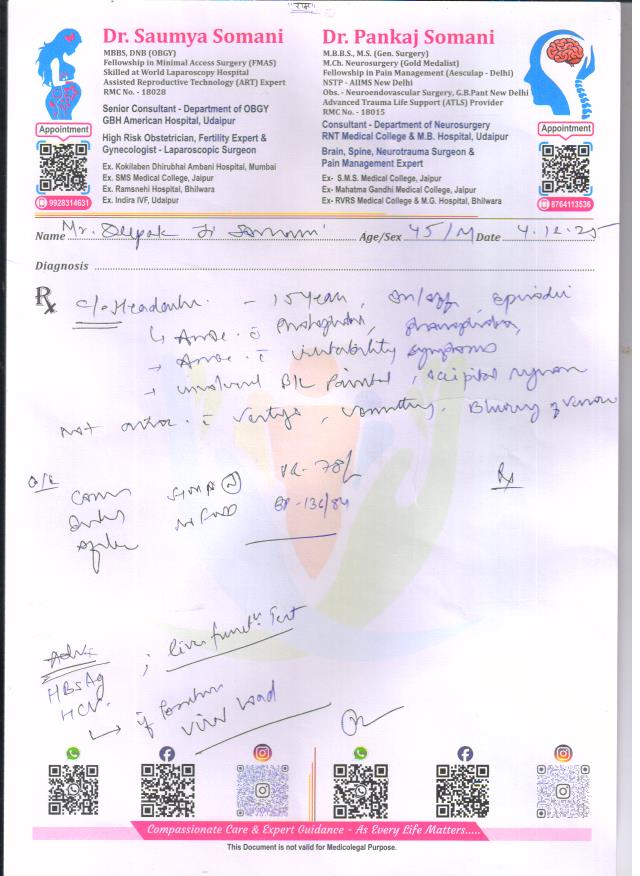 "राम"
Dr. Saumya Somani
MBBS, DNB (OBGY)
Fellowship in Minimal Access Surgery (FMAS)
Skilled at World Laparoscopy Hospital
Assisted Reproductive Technology (ART) Expert
RMC No. - 18028
Senior Consultant - Department of OBGY
GBH American Hospital, Udaipur
High Risk Obstetrician, Fertility Expert &
Gynecologist - Laparoscopic Surgeon
Ex. Kokilaben Dhirubhai Ambani Hospital, Mumbai
Ex. SMS Medical College, Jaipur
Ex. Ramsnehi Hospital, Bhilwara
Ex. Indira IVF, Udaipur
Appointment
9928314631
Dr. Pankaj Somani
M.B.B.S., M.S. (Gen. Surgery)
M.Ch. Neurosurgery (Gold Medalist)
Fellowship in Pain Management (Aesculap - Delhi)
NSTP - AIIMS New Delhi
Obs. - Neuroendovascular Surgery, G.B.Pant New Delhi
Advanced Trauma Life Support (ATLS) Provider
RMC No. - 18015
Consultant - Department of Neurosurgery
RNT Medical College & M.B. Hospital, Udaipur
Brain, Spine, Neurotrauma Surgeon &
Pain Management Expert
Ex- S.M.S. Medical College, Jaipur
Ex- Mahatma Gandhi Medical College, Jaipur
Ex- RVRS Medical College & M.G. Hospital, Bhilwara
Appointment
8764113536
Name Mr. Deepak Ji Somani Age/Sex 45/M Date 4.12.25
Diagnosis
Rx c/o Headache - 15 year, on/off, Episodic
irritability symptoms
involved B/L , occipital
Not , vomiting, Blurring of vision
O/E PR-78/
BP-136/84
Rx
Advice ; Liver function Test
HBsAg
HCV
if
viral load
Compassionate Care & Expert Guidance - As Every Life Matters.....
This Document is not valid for Medicolegal Purpose.